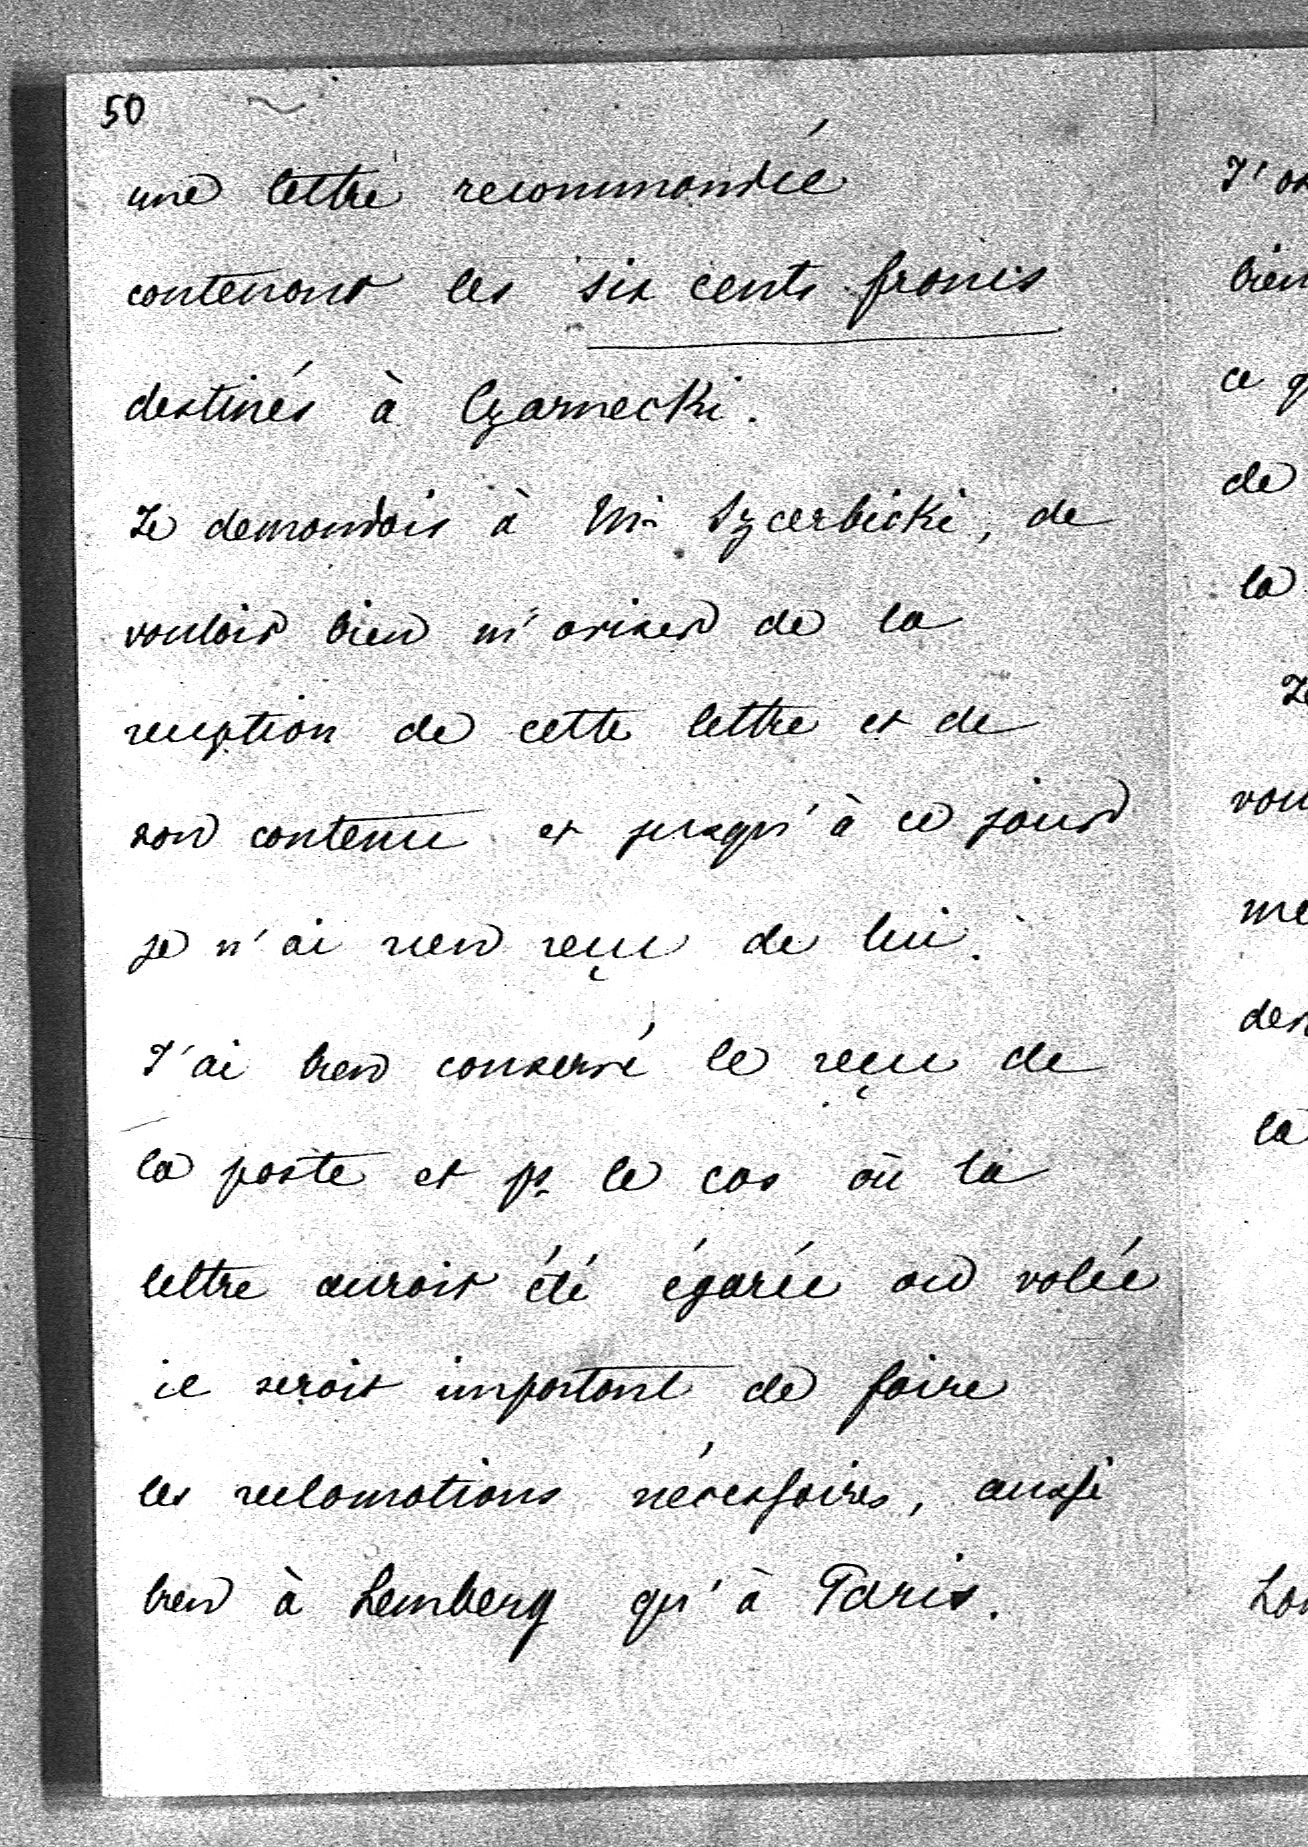 50
une lettre recommandée
contenant les six cents francs
destinés à Czarnecki.
Je demandais à Mr Szcerbicki, de
vouloir bien m'aviser de la
reception de cette lettre et de
son contenu et jusqu'à ce jour
je n'ai rien reçu de lui.
J'ai bien conservé le reçu de
la poste et pr le cas où la
lettre aurait été égarée ou volée
il serait important de faire
les reclamations nécessaires, aussi
bien à Lemberg qu'à Paris.
bien
ce
de
la
me
la